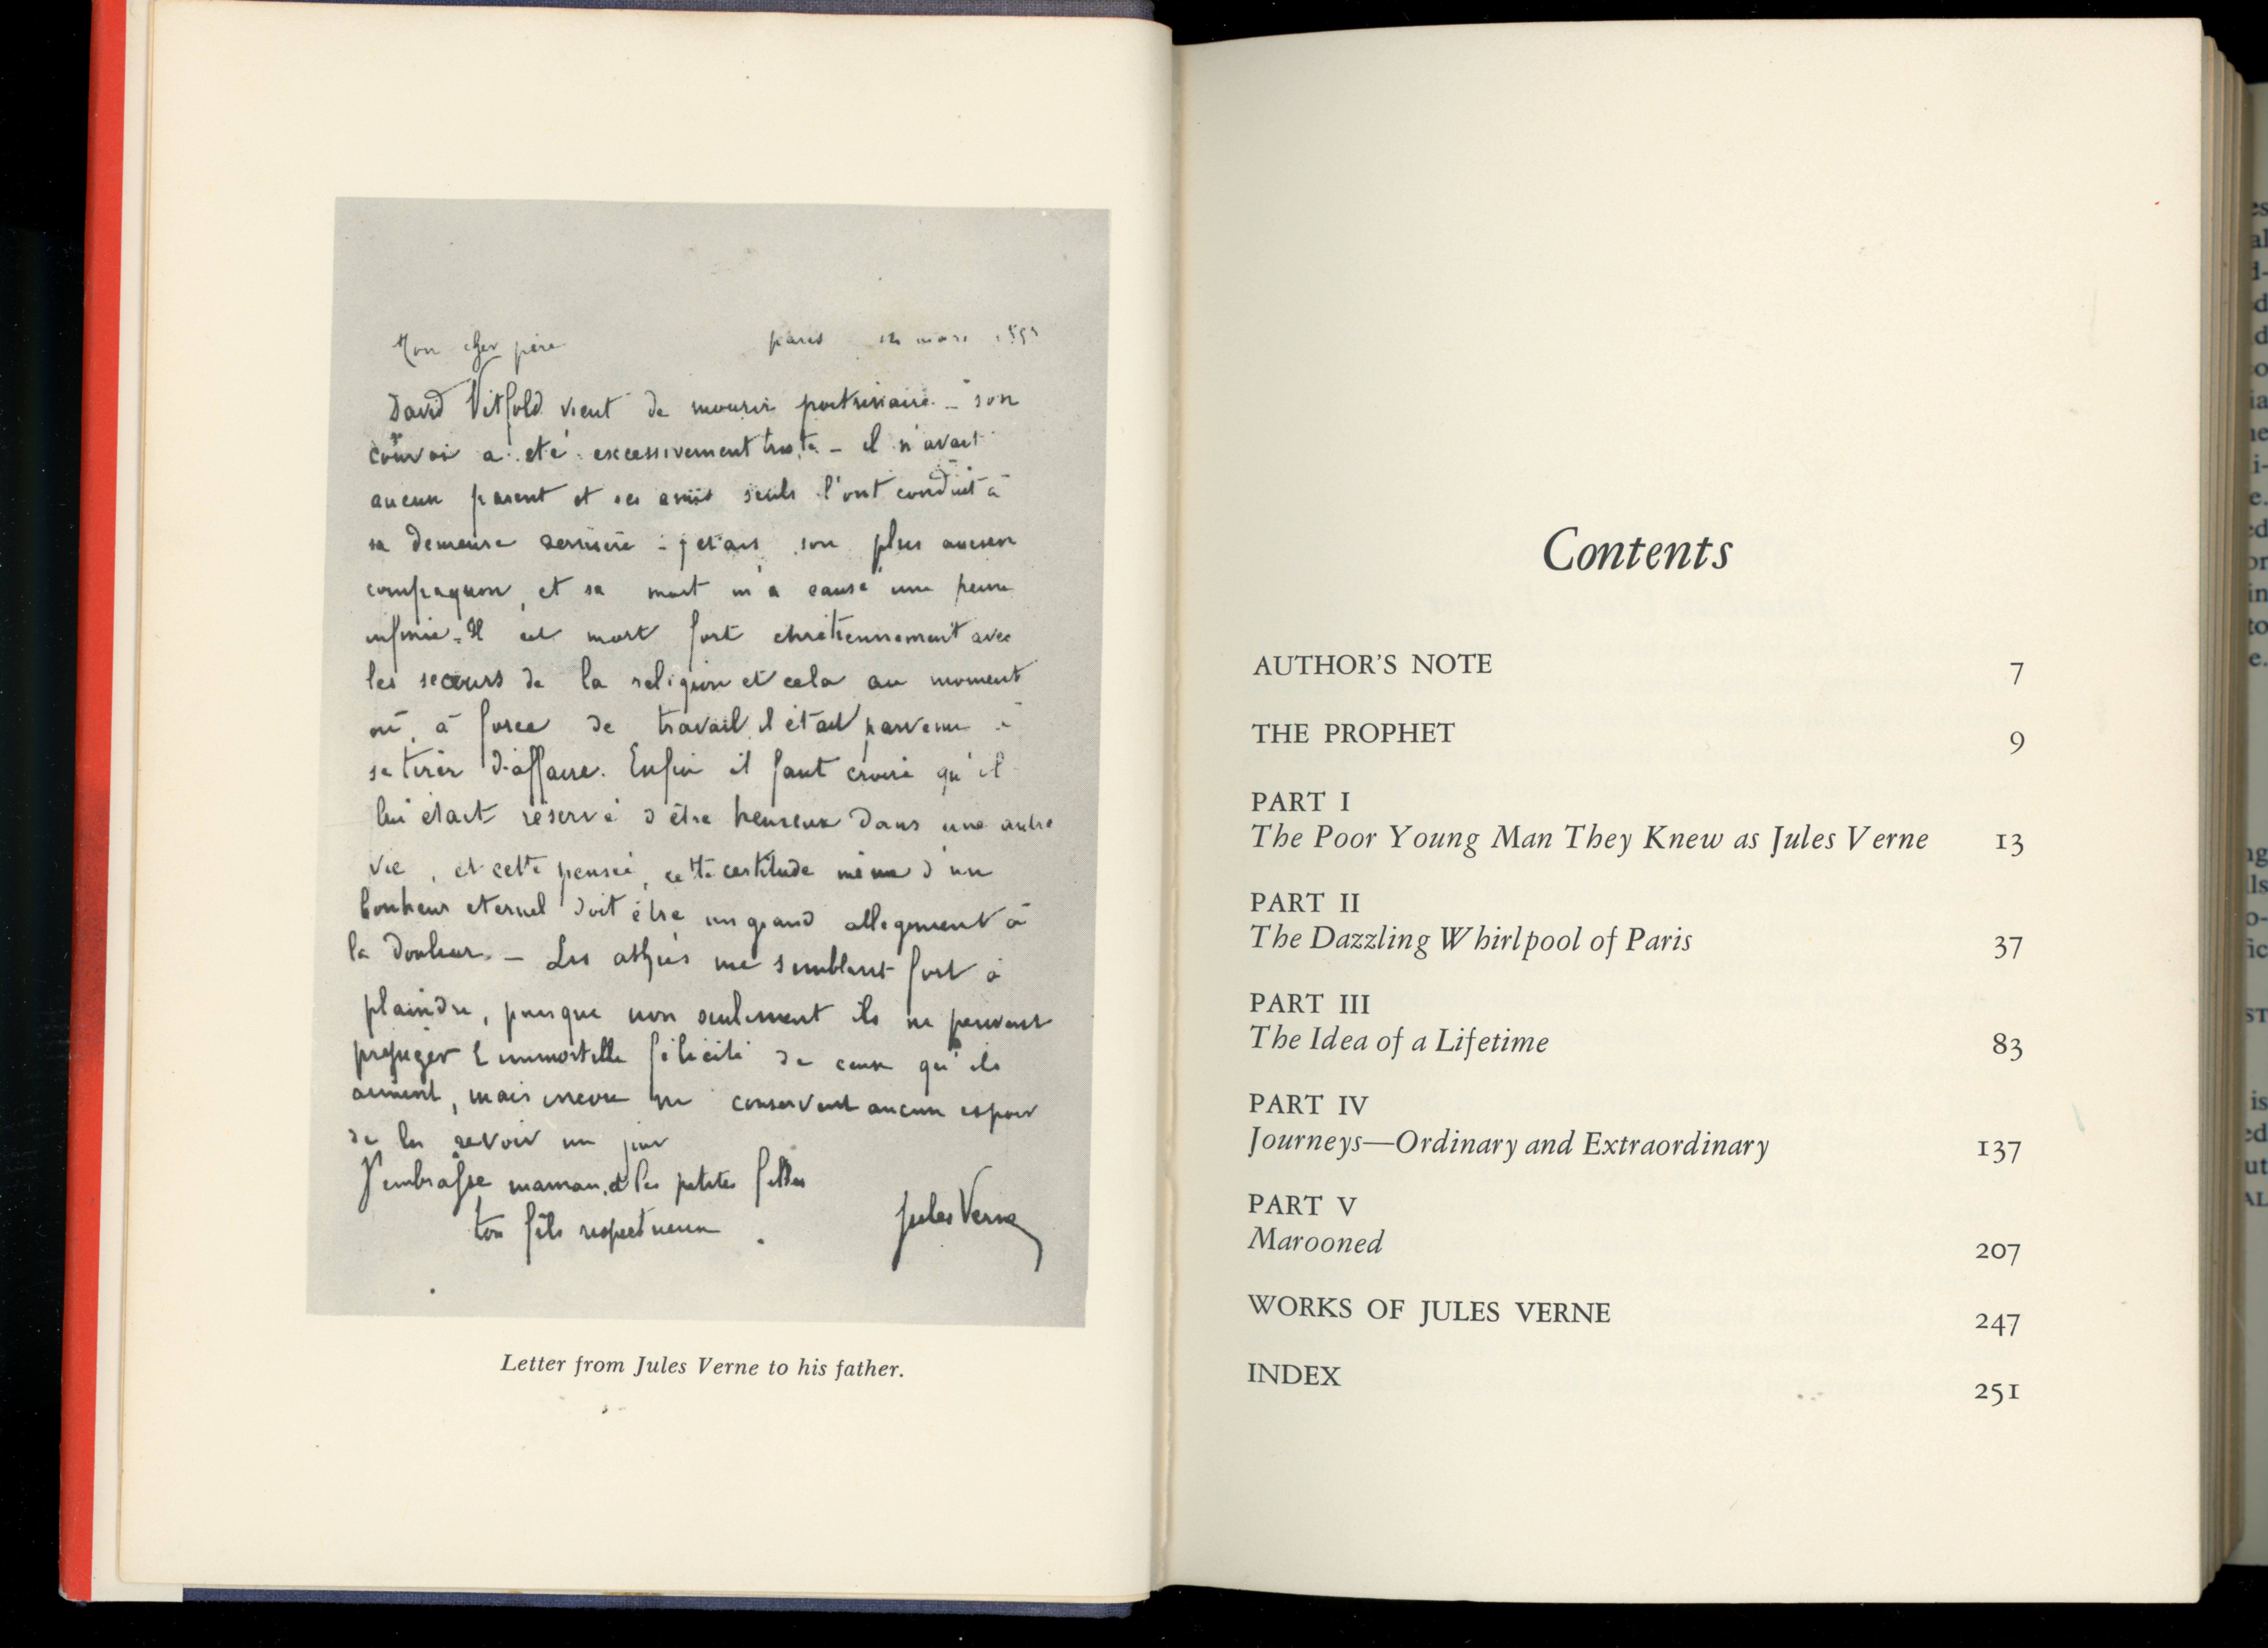 Mon cher père
paris 12 mars
David Vitfold vient de mourir poitrinaire – son
convoi a été excessivement triste – il n'avait
aucun parent et ses amis seuls l'ont conduit à
sa demeure dernière – j'étais son plus ancien
compagnon, et sa mort m'a causé une peine
infinie. Il est mort fort chrétiennement avec
les secours de la religion et cela au moment
où, à force de travail, il était parvenu à
se tirer d'affaire. Enfin il faut croire qu'il
lui était réservé d'être heureux dans une autre
vie, et cette pensée, cette certitude même d'un
bonheur eternel doit être un grand allegement à
la douleur. – Les athées me semblent fort à
plaindre, puisque non seulement ils ne peuvent
préjuger l'immortelle félicité de ceux qu'ils
aiment, mais encore ne conservent aucun espoir
de les revoir un jour
J'embrasse maman et les petites filles
ton fils respectueux.
Jules Verne
Letter from Jules Verne to his father.
Contents
AUTHOR'S NOTE 7
THE PROPHET 9
PART I
The Poor Young Man They Knew as Jules Verne 13
PART II
The Dazzling Whirlpool of Paris 37
PART III
The Idea of a Lifetime 83
PART IV
Journeys—Ordinary and Extraordinary 137
PART V
Marooned 207
WORKS OF JULES VERNE 247
INDEX 251